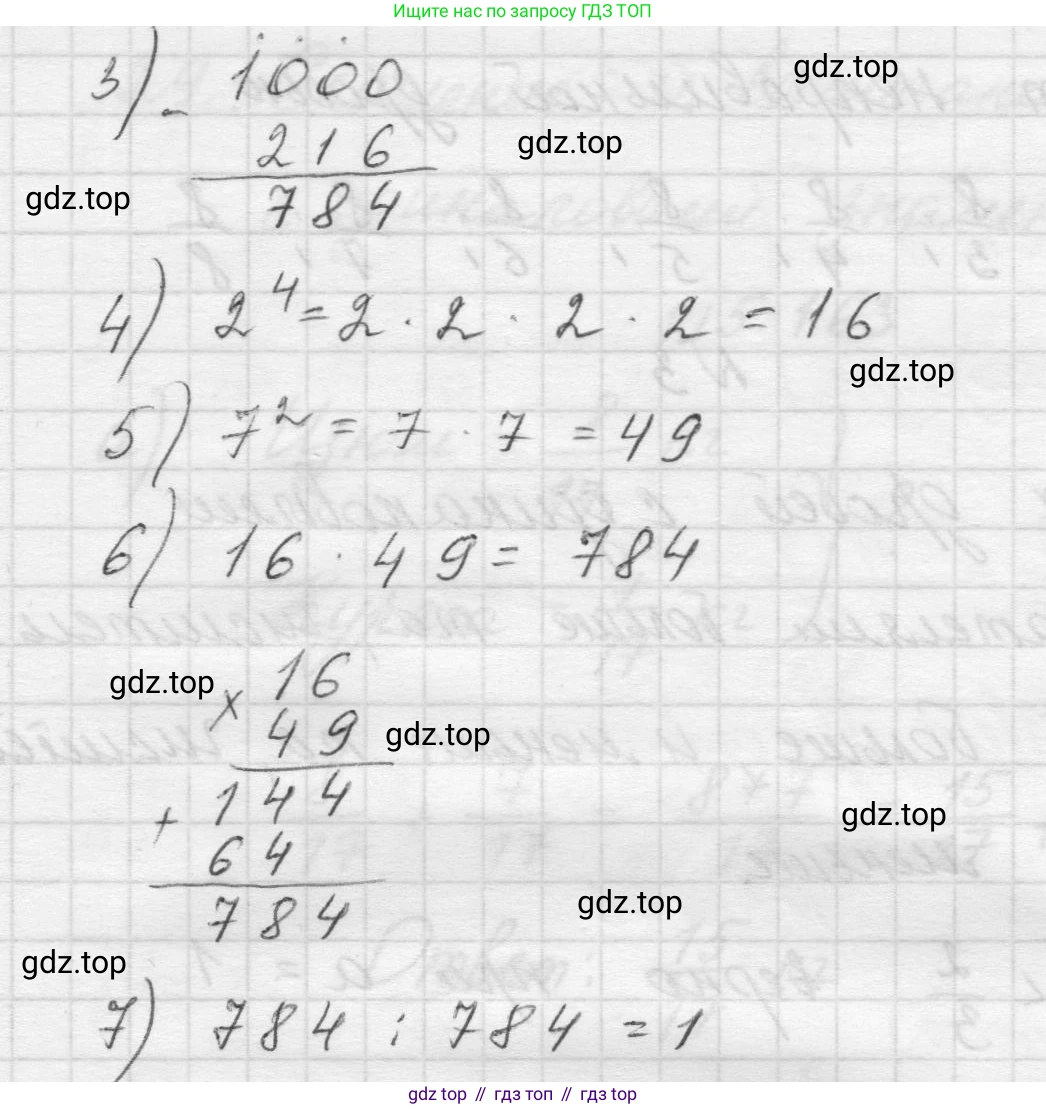 Ищите нас по запросу ГДЗ ТОП
3) - 1000
gdz.top
216
gdz.top
784
gdz.top
4) 2⁴ = 2 · 2 · 2 · 2 = 16
gdz.top
5) 7² = 7 · 7 = 49
6) 16 · 49 = 784
gdz.top
× 16
49
gdz.top
+ 144
gdz.top
64
784
gdz.top
gdz.top
7) 784 : 784 = 1
gdz.top // гдз топ // gdz.top